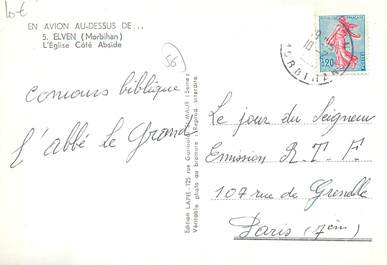 Lot
EN AVION AU-DESSUS DE...
5. ELVEN (Morbihan)
L'Eglise Côté Abside
56
concours biblique
l'abbé le Grand
Edition LAPIE - 125 rue Garibaldi St-MAUR (Seine)
Véritable photo au bromure - Reprod. interdite
0,20
MORBIHAN
Le jour du Seigneur
Emission R.T.F.
107 rue de Grenelle
Paris (7ème)